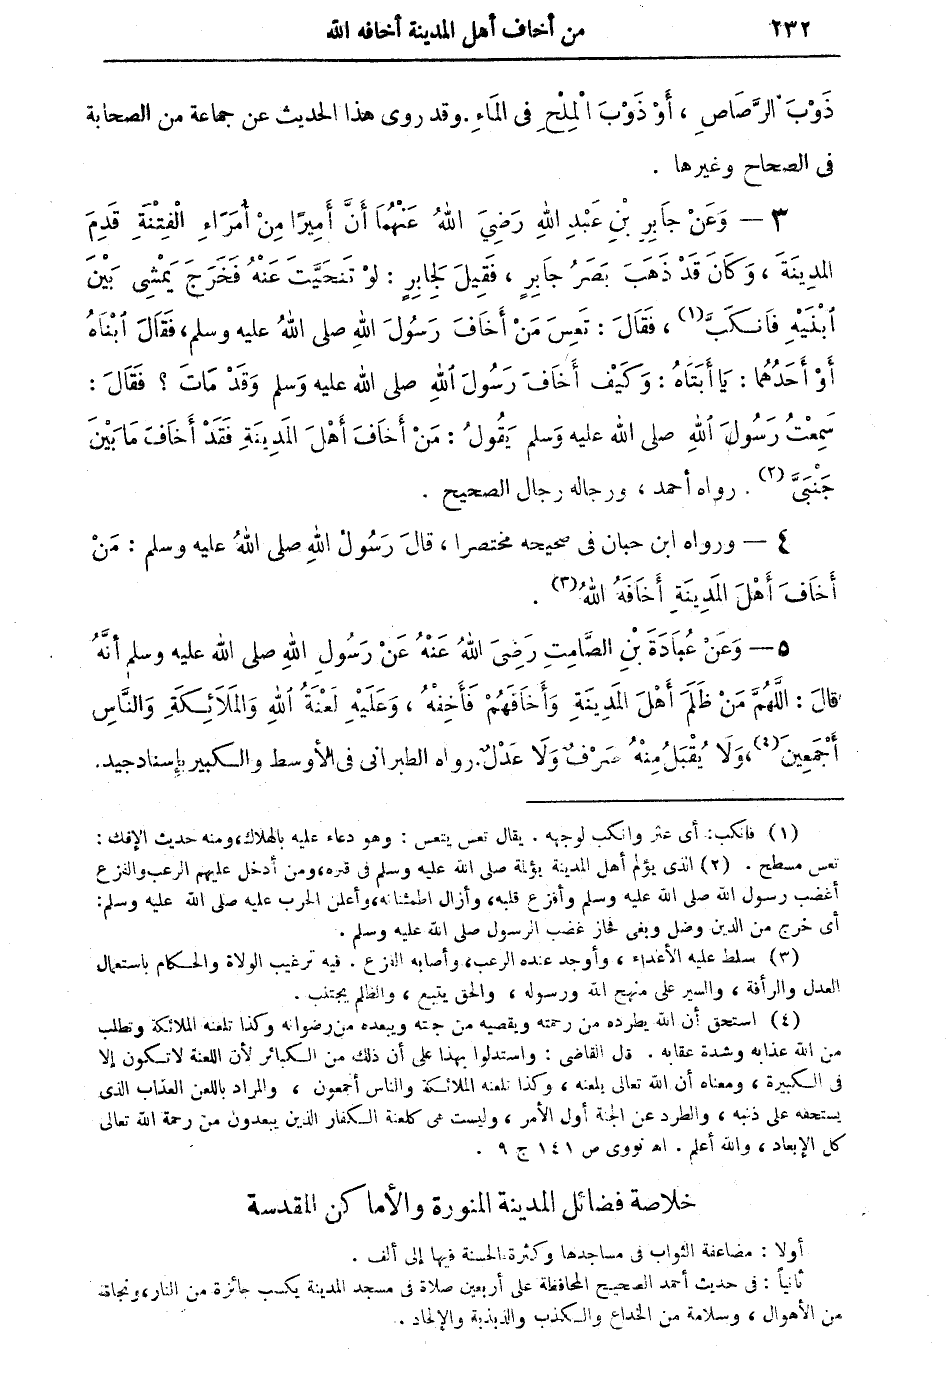 ٢٣٢ من أخاف أهل المدينة أخافه الله
ذَوْبَ الرَّصَاصِ ، أَوْ ذَوْبَ الْمِلْحِ فى المَاءِ . وقد روى هذا الحديث عن جماعة من الصحابة
فى الصحاح وغيرها .
٣ — وَعَنْ جَابِرِ بْنِ عَبْدِ اللهِ رَضِيَ اللهُ عَنْهُمَا أَنَّ أَمِيرًا مِنْ أُمَرَاءِ الْفِتْنَةِ قَدِمَ
المَدِينَةَ ، وَكَانَ قَدْ ذَهَبَ بَصَرُ جَابِرٍ ، فَقِيلَ لِجَابِرٍ : لَوْ تَنَحَّيْتَ عَنْهُ فَخَرَجَ يَمْشِى بَيْنَ
ابْنَيْهِ فَانْكَبَّ(١) ، فَقَالَ : تَعِسَ مَنْ أَخَافَ رَسُولَ اللهِ صلى اللهُ عليه وسلم، فَقَالَ ابْنَاهُ
أَوْ أَحَدُهُمَا : يَا أَبَتَاهُ : وَكَيْفَ أَخَافَ رَسُولَ اللهِ صلى الله عليه وَسلم وَقَدْ مَاتَ ؟ فَقَالَ :
سَمِعْتُ رَسُولَ اللهِ صلى الله عليه وَسلم يَقُولُ : مَنْ أَخَافَ أَهْلَ المَدِينَةِ فَقَدْ أَخَافَ مَا بَيْنَ
جَنْبَيَّ (٢) . رواه أحمد ، ورجاله رجال الصحيح .
٤ — ورواه ابن حبان فى صحيحه مختصرا ، قَالَ رَسُولُ اللهِ صلى اللهُ عليه وسلم : مَنْ
أَخَافَ أَهْلَ المَدِينَةِ أَخَافَهُ اللهُ(٣) .
٥ — وَعَنْ عُبَادَةَ بْنِ الصَّامِتِ رَضِىَ اللهُ عَنْهُ عَنْ رَسُولِ اللهِ صلى الله عليه وسلم أنَّهُ
قَالَ : اللَّهُمَّ مَنْ ظَلَمَ أَهْلَ المَدِينَةِ وَأَخَافَهُمْ فَأَخِفْهُ ، وَعَلَيْهِ لَعْنَةُ اللهِ وَالمَلَائِكَةِ وَالنَّاسِ
أَجْمَعِينَ(٤)، وَلَا يُقْبَلُ مِنْهُ صَرْفٌ وَلَا عَدْلٌ. رواه الطبرانى فى الأوسط والكبير بإسناد جيد.
(١) فانكب: أى عثر وانكب لوجهه . يقال تعس يتعس : وهو دعاء عليه بالهلاك، ومنه حديث الإفك :
تعس مسطح . (٢) الذى يؤلم أهل المدينة يؤلمه صلى الله عليه وسلم فى قبره، ومن أدخل عليهم الرعب والفزع
أغضب رسول الله صلى الله عليه وسلم وأفزع قلبه، وأزال اطمئنانه، وأعلن الحرب عليه صلى الله عليه وسلم:
أى خرج من الدين وضل وبغى فحاز غضب الرسول صلى الله عليه وسلم .
(٣) سلط عليه الأعداء ، وأوجد عنده الرعب، وأصابه الفزع . فيه ترغيب الولاة والحكام باستعمال
العدل والرأفة ، والسير على منهج الله ورسوله ، والحق يتبع ، والظلم يجتنب .
(٤) استحق أن الله يطرده من رحمته ويقصيه من جنته ويبعده من رضوانه وكذا تلعنه الملائكة وتطلب
من الله عذابه وشدة عقابه . قال القاضى : واستدلوا بهذا على أن ذلك من الكبائر لأن اللعنة لا تكون إلا
فى الكبيرة ، ومعناه أن الله تعالى يلعنه ، وكذا تلعنه الملائكة والناس أجمعون ، والمراد باللعن العذاب الذى
يستحقه على ذنبه ، والطرد عن الجنة أول الأمر ، وليست هى كلعنة الكفار الذين يبعدون من رحمة الله تعالى
كل الإبعاد ، والله أعلم . اهـ نووى ص ١٤١ ج ٩ .
خلاصة فضائل المدينة المنورة والأماكن المقدسة
أولا : مضاعفة الثواب فى مساجدها وكثرة الحسنة فيها إلى ألف .
ثانياً : فى حديث أحمد الصحيح المحافظة على أربعين صلاة فى مسجد المدينة يكسب جائزة من النار، ونجاة
من الأهوال ، وسلامة من الخداع والكذب والذبذبة والإلحاد .